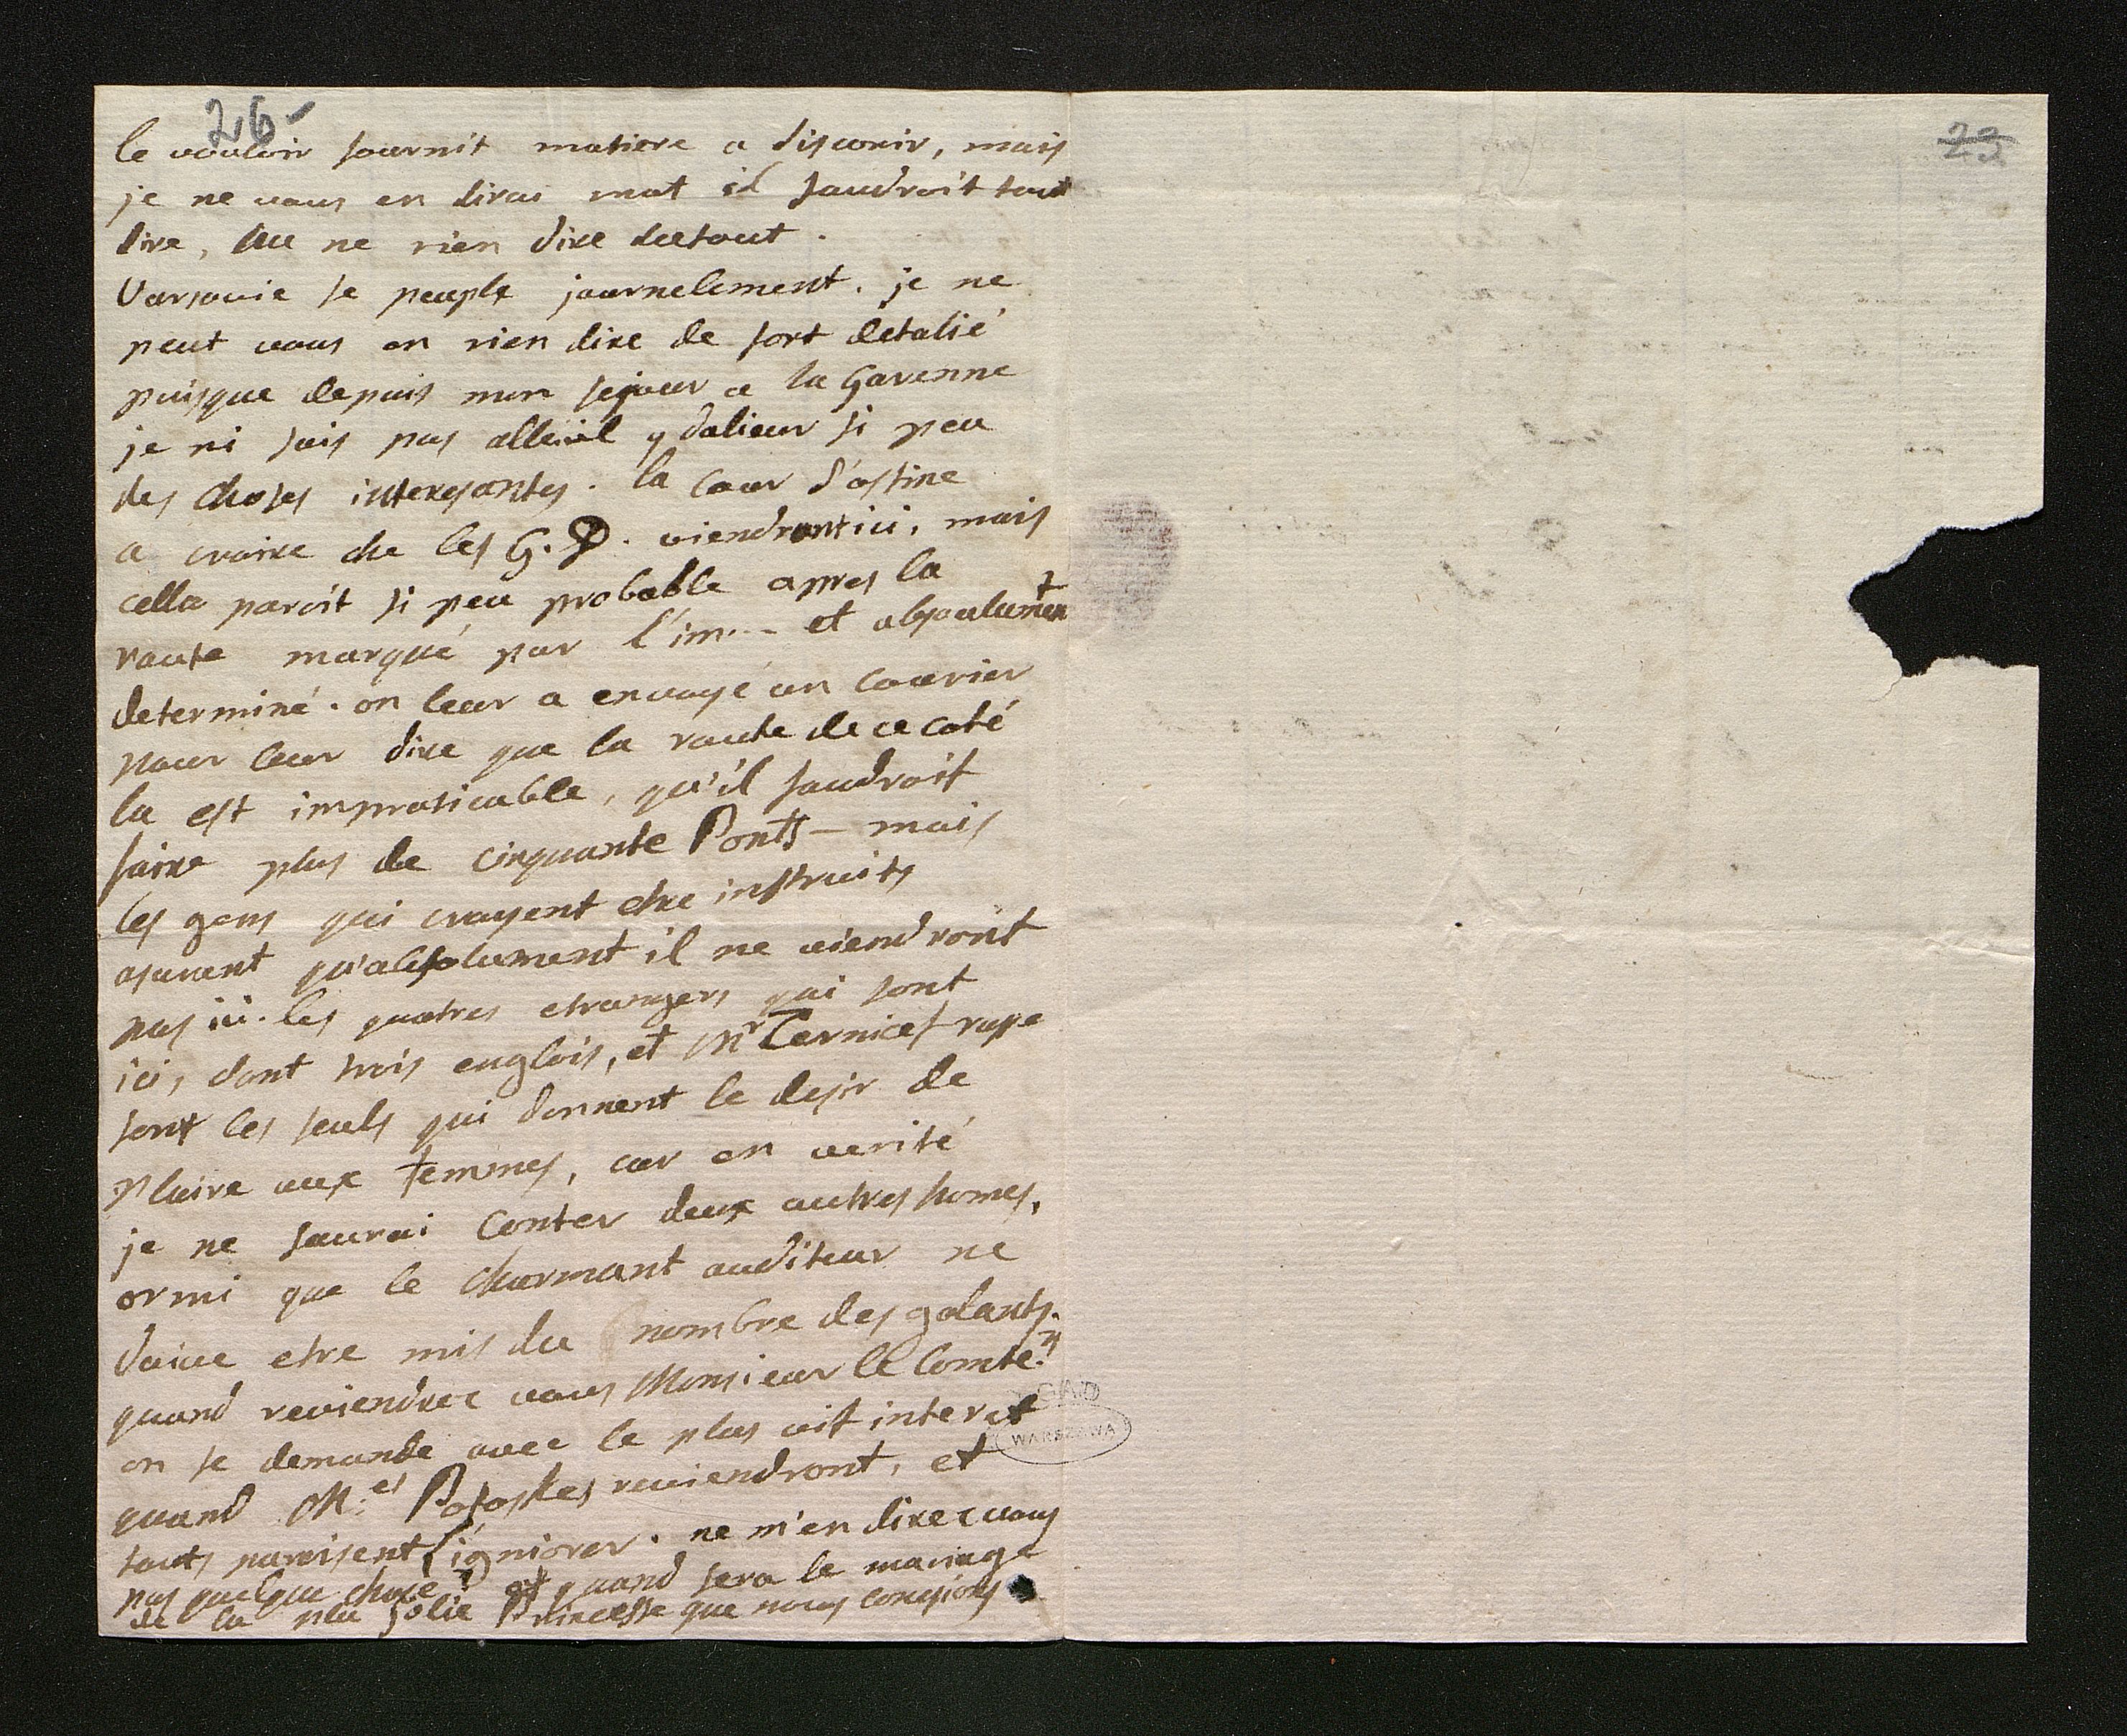 26
23
le vouloir fournit matiere a discourir, mais
je ne vous en dirai mot il faudroit tout
dire, ou ne rien dire dutout.
Varsovie se peuple journelement. je ne
peut vous en rien dire de fort detalié
puisque depuis mon sejour a la Garenne
je ni suis pas allé il y dalieur si peu
des choses interesantes. la cour s'ostine
a croire che les G. D. viendront ici, mais
cella paroit si peu probable apres la
route marqué par l'im... et absoulument
determiné. on leur a envoyé un courier
pour leur dire que la route de ce coté
la est impraticable, qu'il faudroit
faire plus de cinquante Ponts - mais
les gens qui croyent etre instruits
asurent qu'absolument il ne viendront
pas ici. les quatres etrangers qui sont
ici, dont trois englois, et Mr russe
sont les seuls qui donnent le desir de
plaire aux femmes, car en verité
je ne saurai conter deux autres homes,
ormi que le charmant auditeur ne
doive etre mis du nombre des galants.
quand reviendrez vous Monsieur le Comte?
on se demande avec le plus vif interet
quand M:es Potoskes reviendront, et
touts paroisent l'igniorer. ne m'en direz vous
pas quelque chose? et quand sera le mariage
de la plu jolie Princesse que nous conesions
AGAD
WARSZAWA